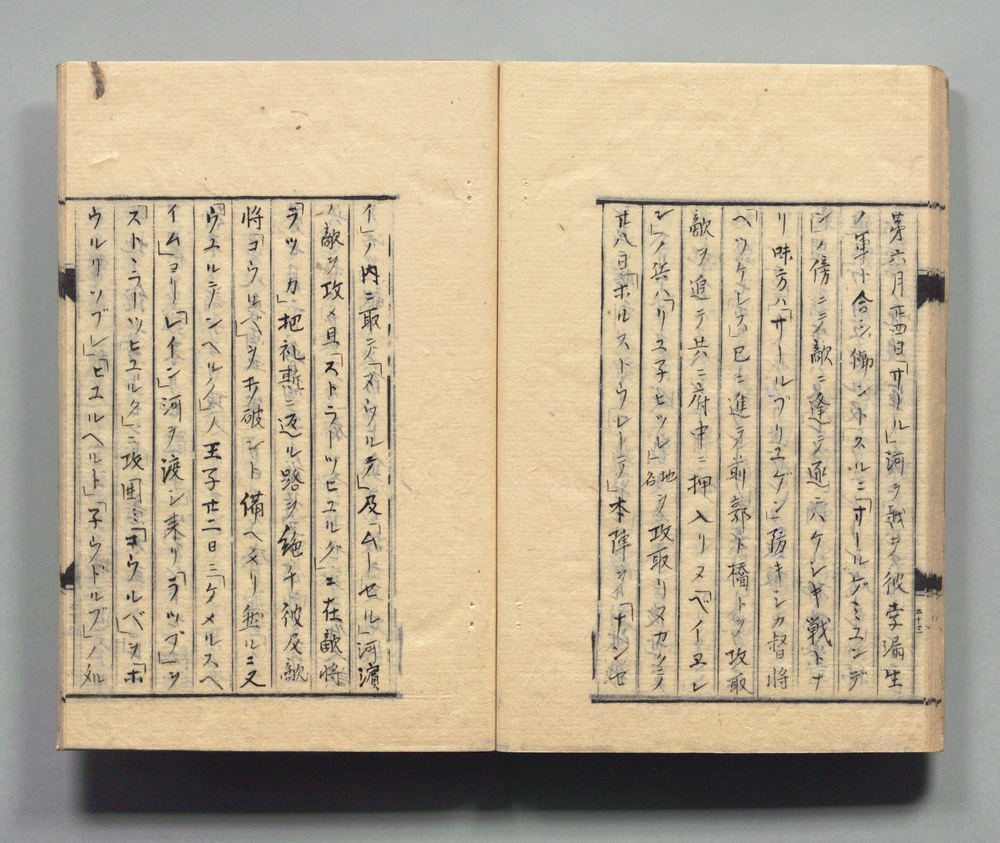 第六月廿四日「サール」河ヲ越ヱ彼孛漏生
ノ軍ト合シ働ントスルニ「サールゲミュンデ
ン」ノ傍ニテ敵ニ逢テ遂ニハケシキ戦トナ
リ味方ハ「サールブリュゲン」防キシカ督将
ヘツケレス」已ニ進テ前郭ト橋トヲ攻取
敵ヲ追テ共ニ府中ニ押入リヌ「ベイエレ
ン」ノ兵ハ「リュ子ヒツレ」地名ヲ攻取リヌカクテ
廿八日「ホルストウレーデ」本陣ヲ「ナンセ
イ」ノ内ニ取テ「メウルテ」及「ムーセル」河濱
ノ敵ヲ攻メ且「ストラーツビュルグ」ニ在敵将
「ラツカ」把礼斯ニ返ル路ヲ絶チ彼及敵
将「コウルヘ」ヲ打破ント備ヘタリ然ルニ又
「ウュルテンヘルク」ノ王子廿二日ニ「ゲメルスヘ
イム」ヨリ「レイン」河ヲ渡シ来リ「ラツダ」ヲ
「ストラーツビュルグ」ニ攻囲ミ「コウルベ」ヲ「ホ
ウルリソブレ」「ヒュルヘルド」「子ウドルプ」ノ処